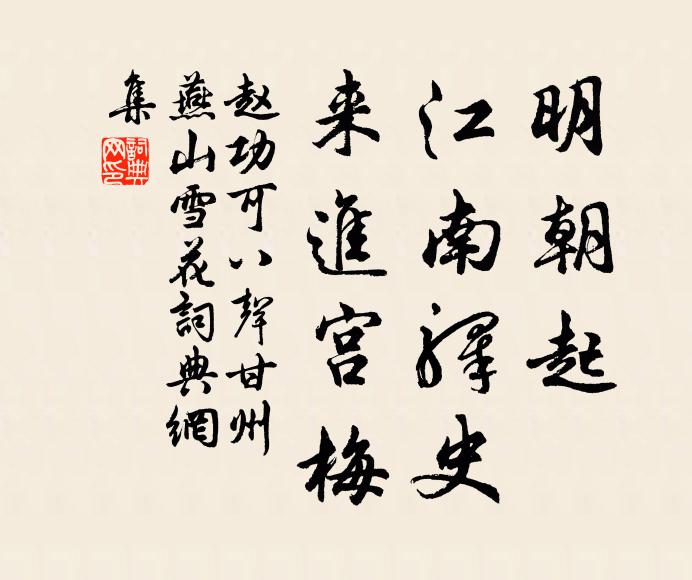 明朝起
江南驛史
来進宫梅
赵功可八聲甘州
燕山雪花詞典網
集
詞典
网印